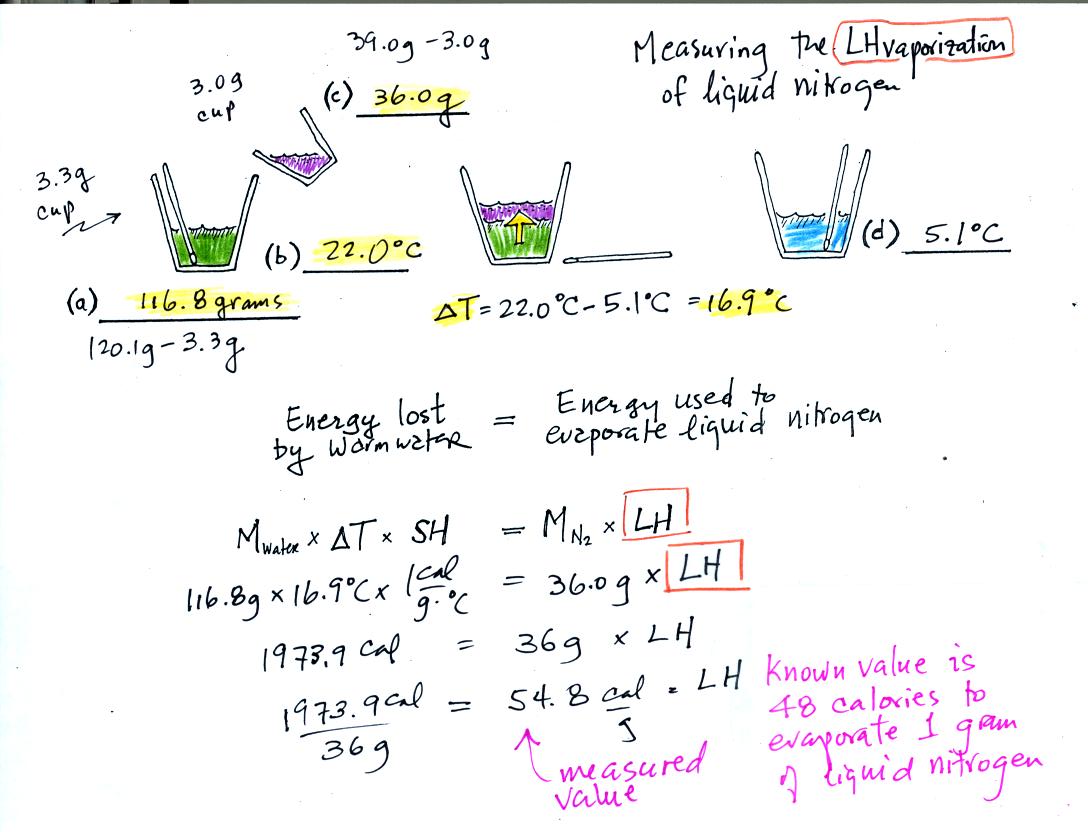 39.0g - 3.0g
Measuring the LHvaporization
of liquid nitrogen
3.0g
cup
(c) 36.0g
3.3g
cup
(b) 22.0°C
(d) 5.1°C
(a) 116.8 grams
120.1g - 3.3g
ΔT = 22.0°C - 5.1°C = 16.9°C
Energy lost
by warm water
=
Energy used to
evaporate liquid nitrogen
Mwater × ΔT × SH = MN₂ × LH
116.8g × 16.9°C × 1 cal/g·°C = 36.0g × LH
1973.9 cal = 36g × LH
1973.9 cal/36g = 54.8 cal/g = LH
measured
value
Known value is
48 calories to
evaporate 1 gram
of liquid nitrogen